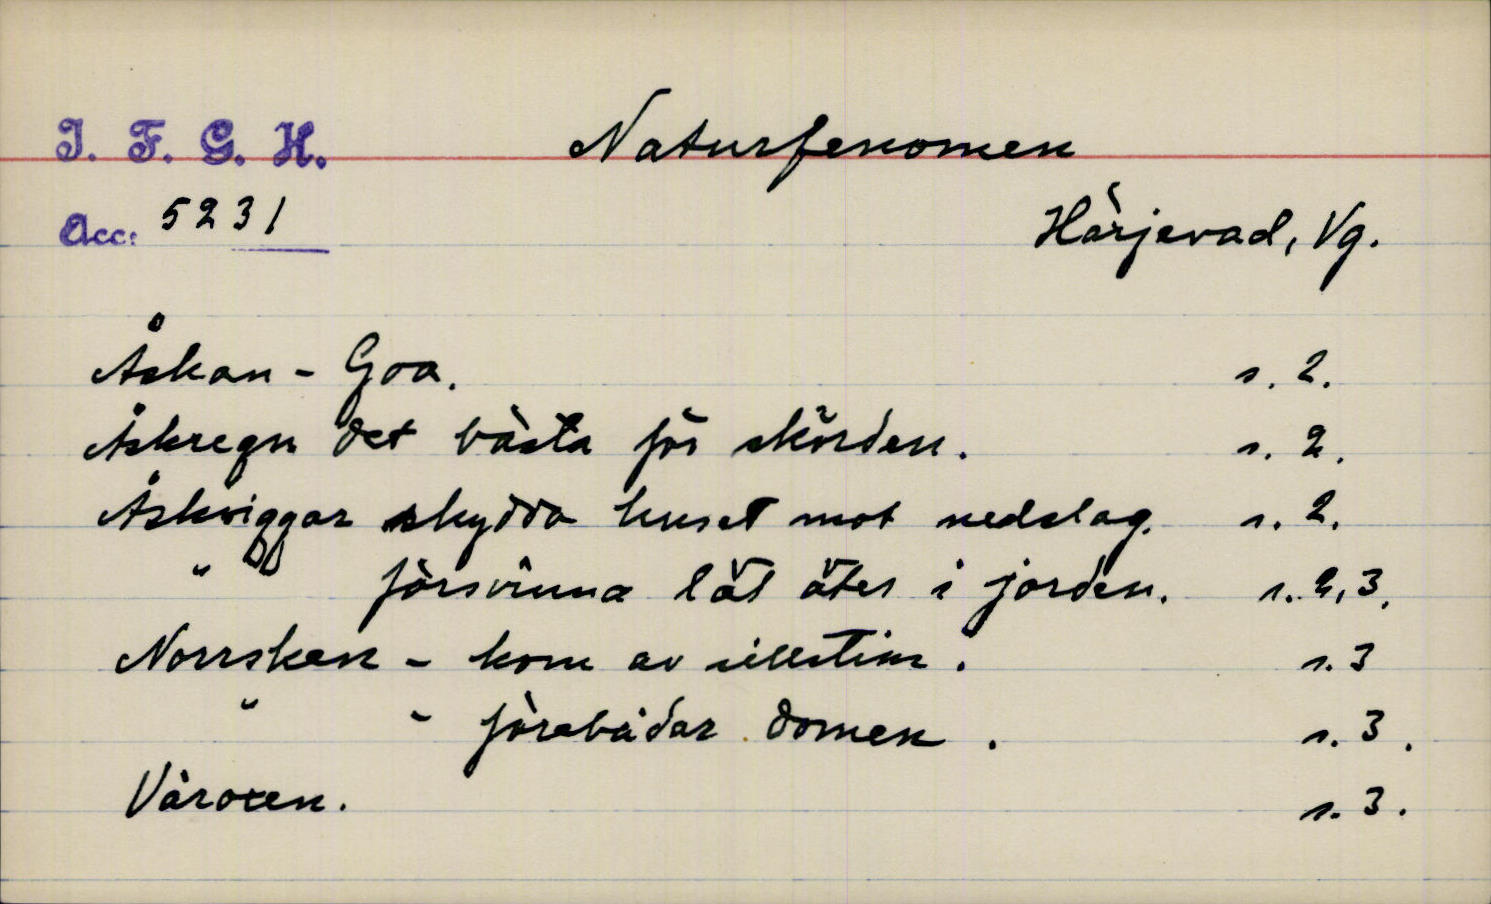 I. F. G. H.
Naturfenomen
Acc: 5231
Härjevad, Vg.
Åskan - Goa. s. 2.
Åskregn det bästa för skörden. s. 2.
Åskviggar skydda huset mot nedslag. s. 2.
" försvinna låt åter i jorden. s. 2, 3.
Norrsken - kom av sillstim. s. 3
" - förebådar domen. s. 3.
Våroxen. s. 3.